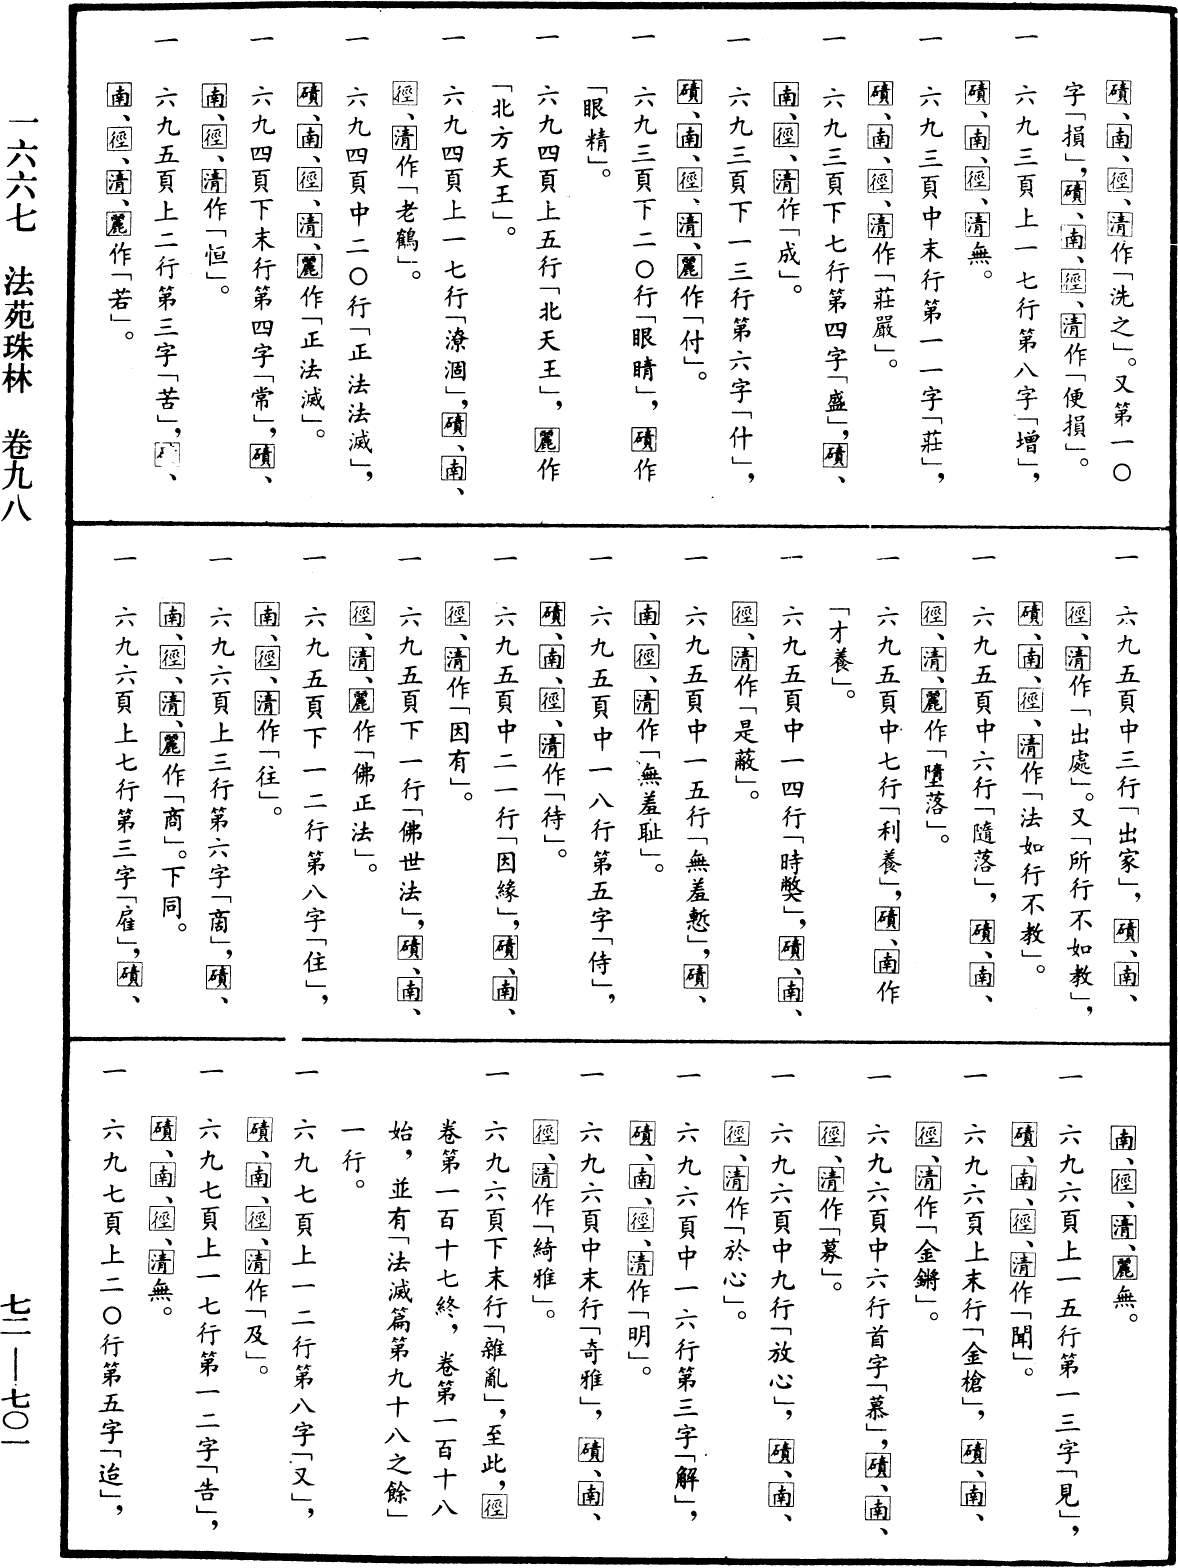 磧、南、徑、清作「洗之」。又第一〇
字「損」，磧、南、徑、清作「便損」。
一　六九三頁上一七行第八字「增」，
磧、南、徑、清無。
一　六九三頁中末行第一一字「莊」，
磧、南、徑、清作「莊嚴」。
一　六九三頁下七行第四字「盛」，磧、
南、徑、清作「成」。
一　六九三頁下一三行第六字「什」，
磧、南、徑、清、麗作「付」。
一　六九三頁下二〇行「眼睛」，磧作
「眼精」。
一　六九四頁上五行「北天王」，麗作
「北方天王」。
一　六九四頁上一七行「潦涸」，磧、南、
徑、清作「老鶴」。
一　六九四頁中二〇行「正法法滅」，
磧、南、徑、清、麗作「正法滅」。
一　六九四頁下末行第四字「常」，磧、
南、徑、清作「恒」。
一　六九五頁上二行第三字「苦」，磧、
南、徑、清、麗作「若」。
一　六九五頁中三行「出家」，磧、南、
徑、清作「出處」。又「所行不如教」，
磧、南、徑、清作「法如行不教」。
一　六九五頁中六行「隨落」，磧、南、
徑、清、麗作「墮落」。
一　六九五頁中七行「利養」，磧、南作
「才養」。
一　六九五頁中一四行「時獘」，磧、南、
徑、清作「是蔽」。
一　六九五頁中一五行「無羞慙」，磧、
南、徑、清作「無羞耻」。
一　六九五頁中一八行第五字「侍」，
磧、南、徑、清作「待」。
一　六九五頁中二一行「因緣」，磧、南、
徑、清作「因有」。
一　六九五頁下一行「佛世法」，磧、南、
徑、清、麗作「佛正法」。
一　六九五頁下一二行第八字「住」，
南、徑、清作「往」。
一　六九六頁上三行第六字「啇」，磧、
南、徑、清、麗作「商」。下同。
一　六九六頁上七行第三字「雇」，磧、
南、徑、清、麗無。
一　六九六頁上一五行第一三字「見」，
磧、南、徑、清作「聞」。
一　六九六頁上末行「金槍」，磧、南、
徑、清作「金鏘」。
一　六九六頁中六行首字「慕」，磧、南、
徑、清作「募」。
一　六九六頁中九行「放心」，磧、南、
徑、清作「於心」。
一　六九六頁中一六行第三字「解」，
磧、南、徑、清作「明」。
一　六九六頁中末行「奇雅」，磧、南、
徑、清作「綺雅」。
一　六九六頁下末行「雜亂」，至此，徑
卷第一百十七終，卷第一百十八
始，並有「法滅篇第九十八之餘」
一行。
一　六九七頁上一二行第八字「又」，
磧、南、徑、清作「及」。
一　六九七頁上一七行第一二字「告」，
磧、南、徑、清無。
一　六九七頁上二〇行第五字「迨」，
一六六七　法苑珠林　卷九八
七二—七〇一